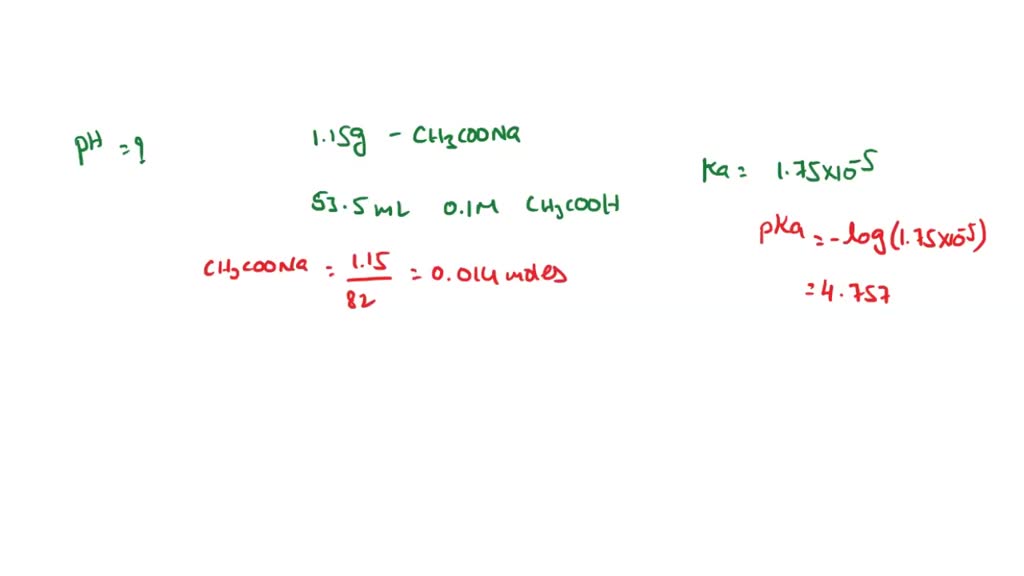 pH = ?
1.15g - CH3COONa
Ka = 1.75×10^-5
53.5 mL 0.1M CH3COOH
pKa = -log(1.75×10^-5)
= 4.757
CH3COONa = 1.15/82 = 0.014 moles